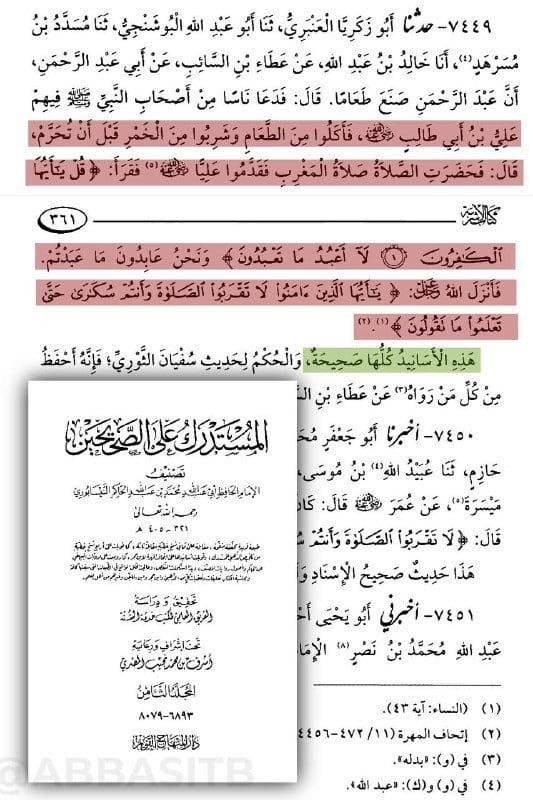 ٧٤٤٩- حدثنا أَبُو زَكَرِيَّا الْعَنْبَرِيُّ، ثَنَا أَبُو عَبْدِ اللهِ الْبُوشَنْجِيُّ، ثَنَا مُسَدَّدُ بْنُ
مُسَرْهَدٍ(٤)، أَنَا خَالِدُ بْنُ عَبْدِ اللهِ، عَنْ عَطَاءِ بْنِ السَّائِبِ، عَنْ أَبِي عَبْدِ الرَّحْمَنِ،
أَنَّ عَبْدَ الرَّحْمَنِ صَنَعَ طَعَامًا. قَالَ: فَدَعَا نَاسًا مِنْ أَصْحَابِ النَّبِيِّ ﷺ فِيهِمْ
عَلِيُّ بْنُ أَبِي طَالِبٍ ﵁، فَأَكَلُوا مِنَ الطَّعَامِ وَشَرِبُوا مِنَ الْخَمْرِ قَبْلَ أَنْ تُحَرَّمَ،
قَالَ: فَحَضَرَتِ الصَّلَاةُ صَلَاةُ الْمَغْرِبِ فَقَدَّمُوا عَلِيًّا ﵁(٥) فَقَرَأَ: ﴿ قُلْ يَٰٓأَيُّهَا
كتاب الأشربة
٣٦١
ٱلْكَٰفِرُونَ ۝١ لَآ أَعْبُدُ مَا تَعْبُدُونَ ﴾ وَنَحْنُ عَابِدُونَ مَا عَبَدْتُمْ.
فَأَنْزَلَ اللهُ ﷻ: ﴿ يَٰٓأَيُّهَا ٱلَّذِينَ ءَامَنُوا۟ لَا تَقْرَبُوا۟ ٱلصَّلَوٰةَ وَأَنتُمْ سُكَٰرَىٰ حَتَّىٰ
تَعْلَمُوا۟ مَا تَقُولُونَ ﴾(١).(٢)
هَذِهِ الْأَسَانِيدُ كُلُّهَا صَحِيحَةٌ، وَالْحُكْمُ لِحَدِيثِ سُفْيَانَ الثَّوْرِيِّ؛ فَإِنَّهُ أَحْفَظُ
مِنْ كُلِّ مَنْ رَوَاهُ(٣) عَنْ عَطَاءِ بْنِ
٧٤٥٠- أخبرنا أَبُو جَعْفَرٍ
حَازِمٍ، ثَنَا عُبَيْدُ اللهِ(٤) بْنُ مُوسَى،
مَيْسَرَةَ(٥)، عَنْ عُمَرَ ﵁ قَالَ:
قَالَ: ﴿ لَا تَقْرَبُوا۟ ٱلصَّلَوٰةَ وَأَنتُمْ
هَذَا حَدِيثٌ صَحِيحُ الْإِسْنَادِ
٧٤٥١- أخبرني أَبُو يَحْيَى
عَبْدِ اللهِ مُحَمَّدُ بْنُ نَصْرٍ(٨)
(١) (النساء: آية ٤٣).
(٢) إتحاف المهرة (١١/ ٤٧٢-
(٣) في (و): «بدله».
(٤) في (و) و(ك): «عبد الله».
المستدرك على الصحيحين
تصنيف
الإمام الحافظ أبي عبد الله محمد بن عبد الله الحاكم النيسابوري
رحمه الله تعالى
٣٢١ - ٤٠٥ هـ
تحقيق ودراسة
الفريق العلمي لمكتب خدمة السنة
تحت إشراف ورعاية
أشرف بن محمد نجيب المصري
المجلد الثامن
٦٨٩٣-٨٠٧٩
دار المنهاج القويم
@ABBASITB